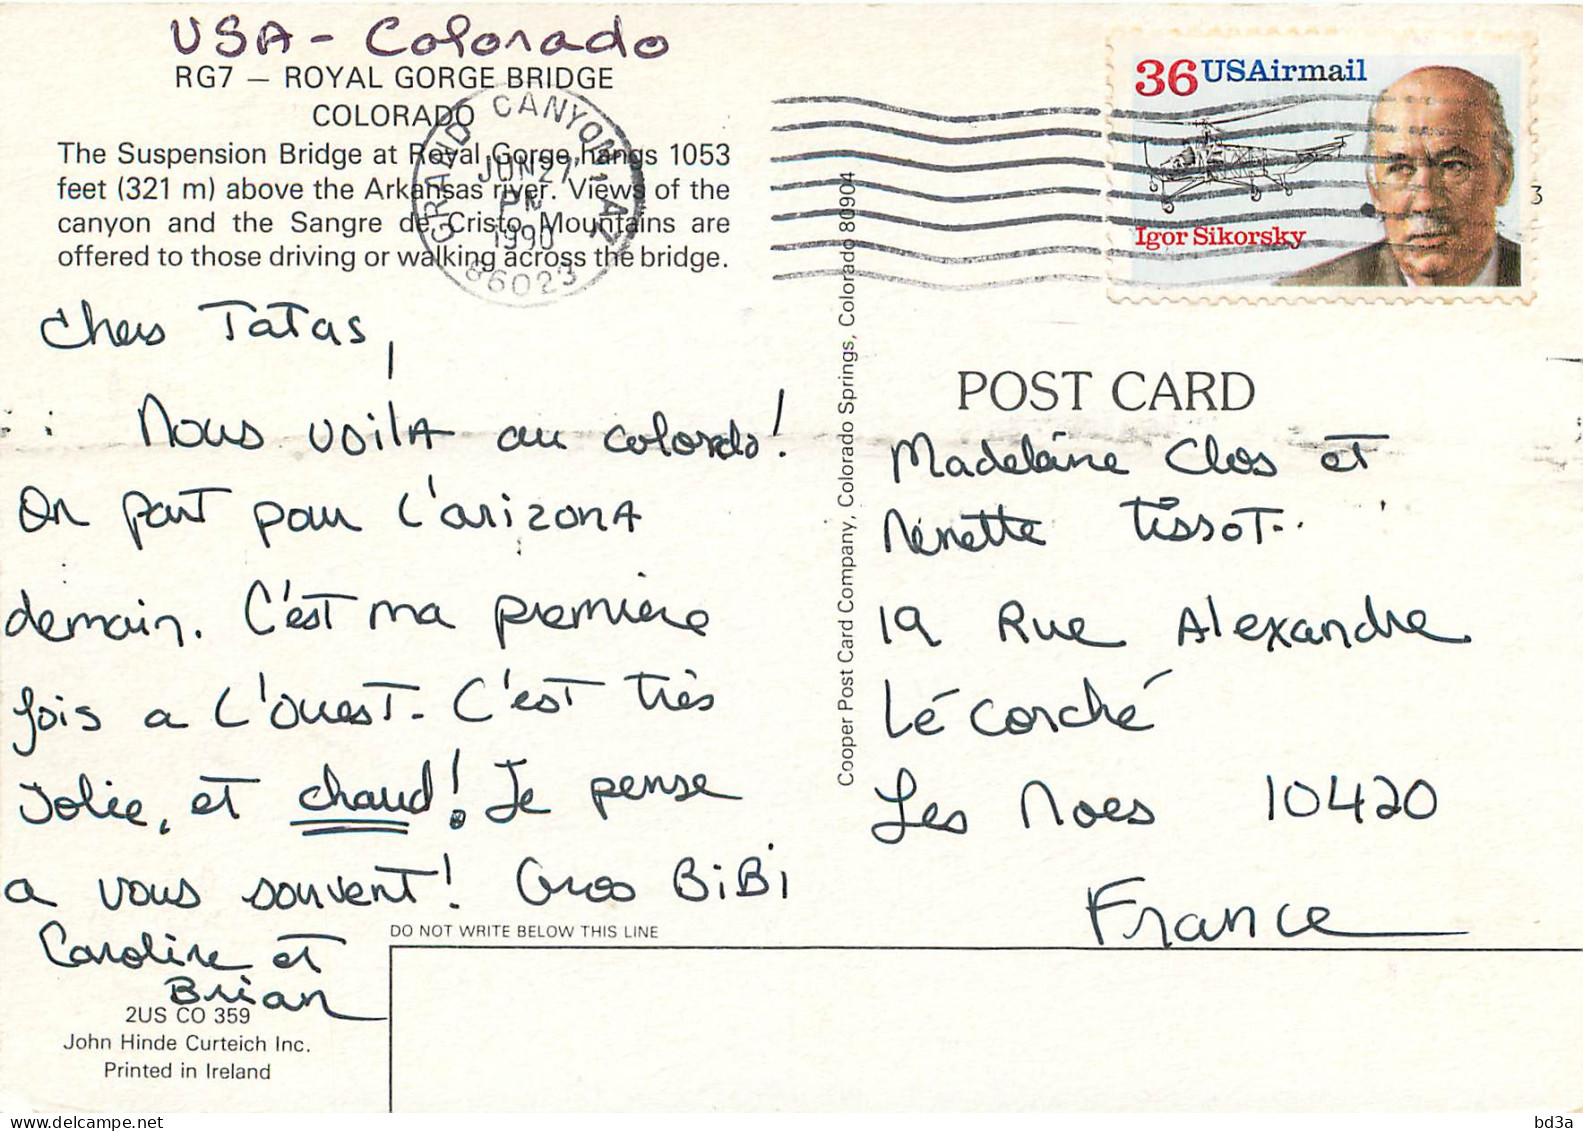 USA - Colorado
RG7 — ROYAL GORGE BRIDGE
COLORADO
The Suspension Bridge at Royal Gorge, hangs 1053
feet (321 m) above the Arkansas river. Views of the
canyon and the Sangre de Cristo Mountains are
offered to those driving or walking across the bridge.
GRAND CANYON, AZ
JUN 27
PM
1990
86023
36 USAirmail
Igor Sikorsky
3
Chers Tatas,
Nous voilA au colorado!
On part pour l'arizonA
demain. C'est ma premiere
fois a l'ouest. C'est très
Jolie, et chaud! Je pense
a vous souvent! Gros BiBi
Caroline et
Brian
2US CO 359
John Hinde Curteich Inc.
Printed in Ireland
Cooper Post Card Company, Colorado Springs, Colorado 80904
POST CARD
Madeleine Clos et
Nenette Tissot.
19 Rue Alexandre
Lé Corché
Les Noes 10420
France
DO NOT WRITE BELOW THIS LINE
www.delcampe.net
bd3a